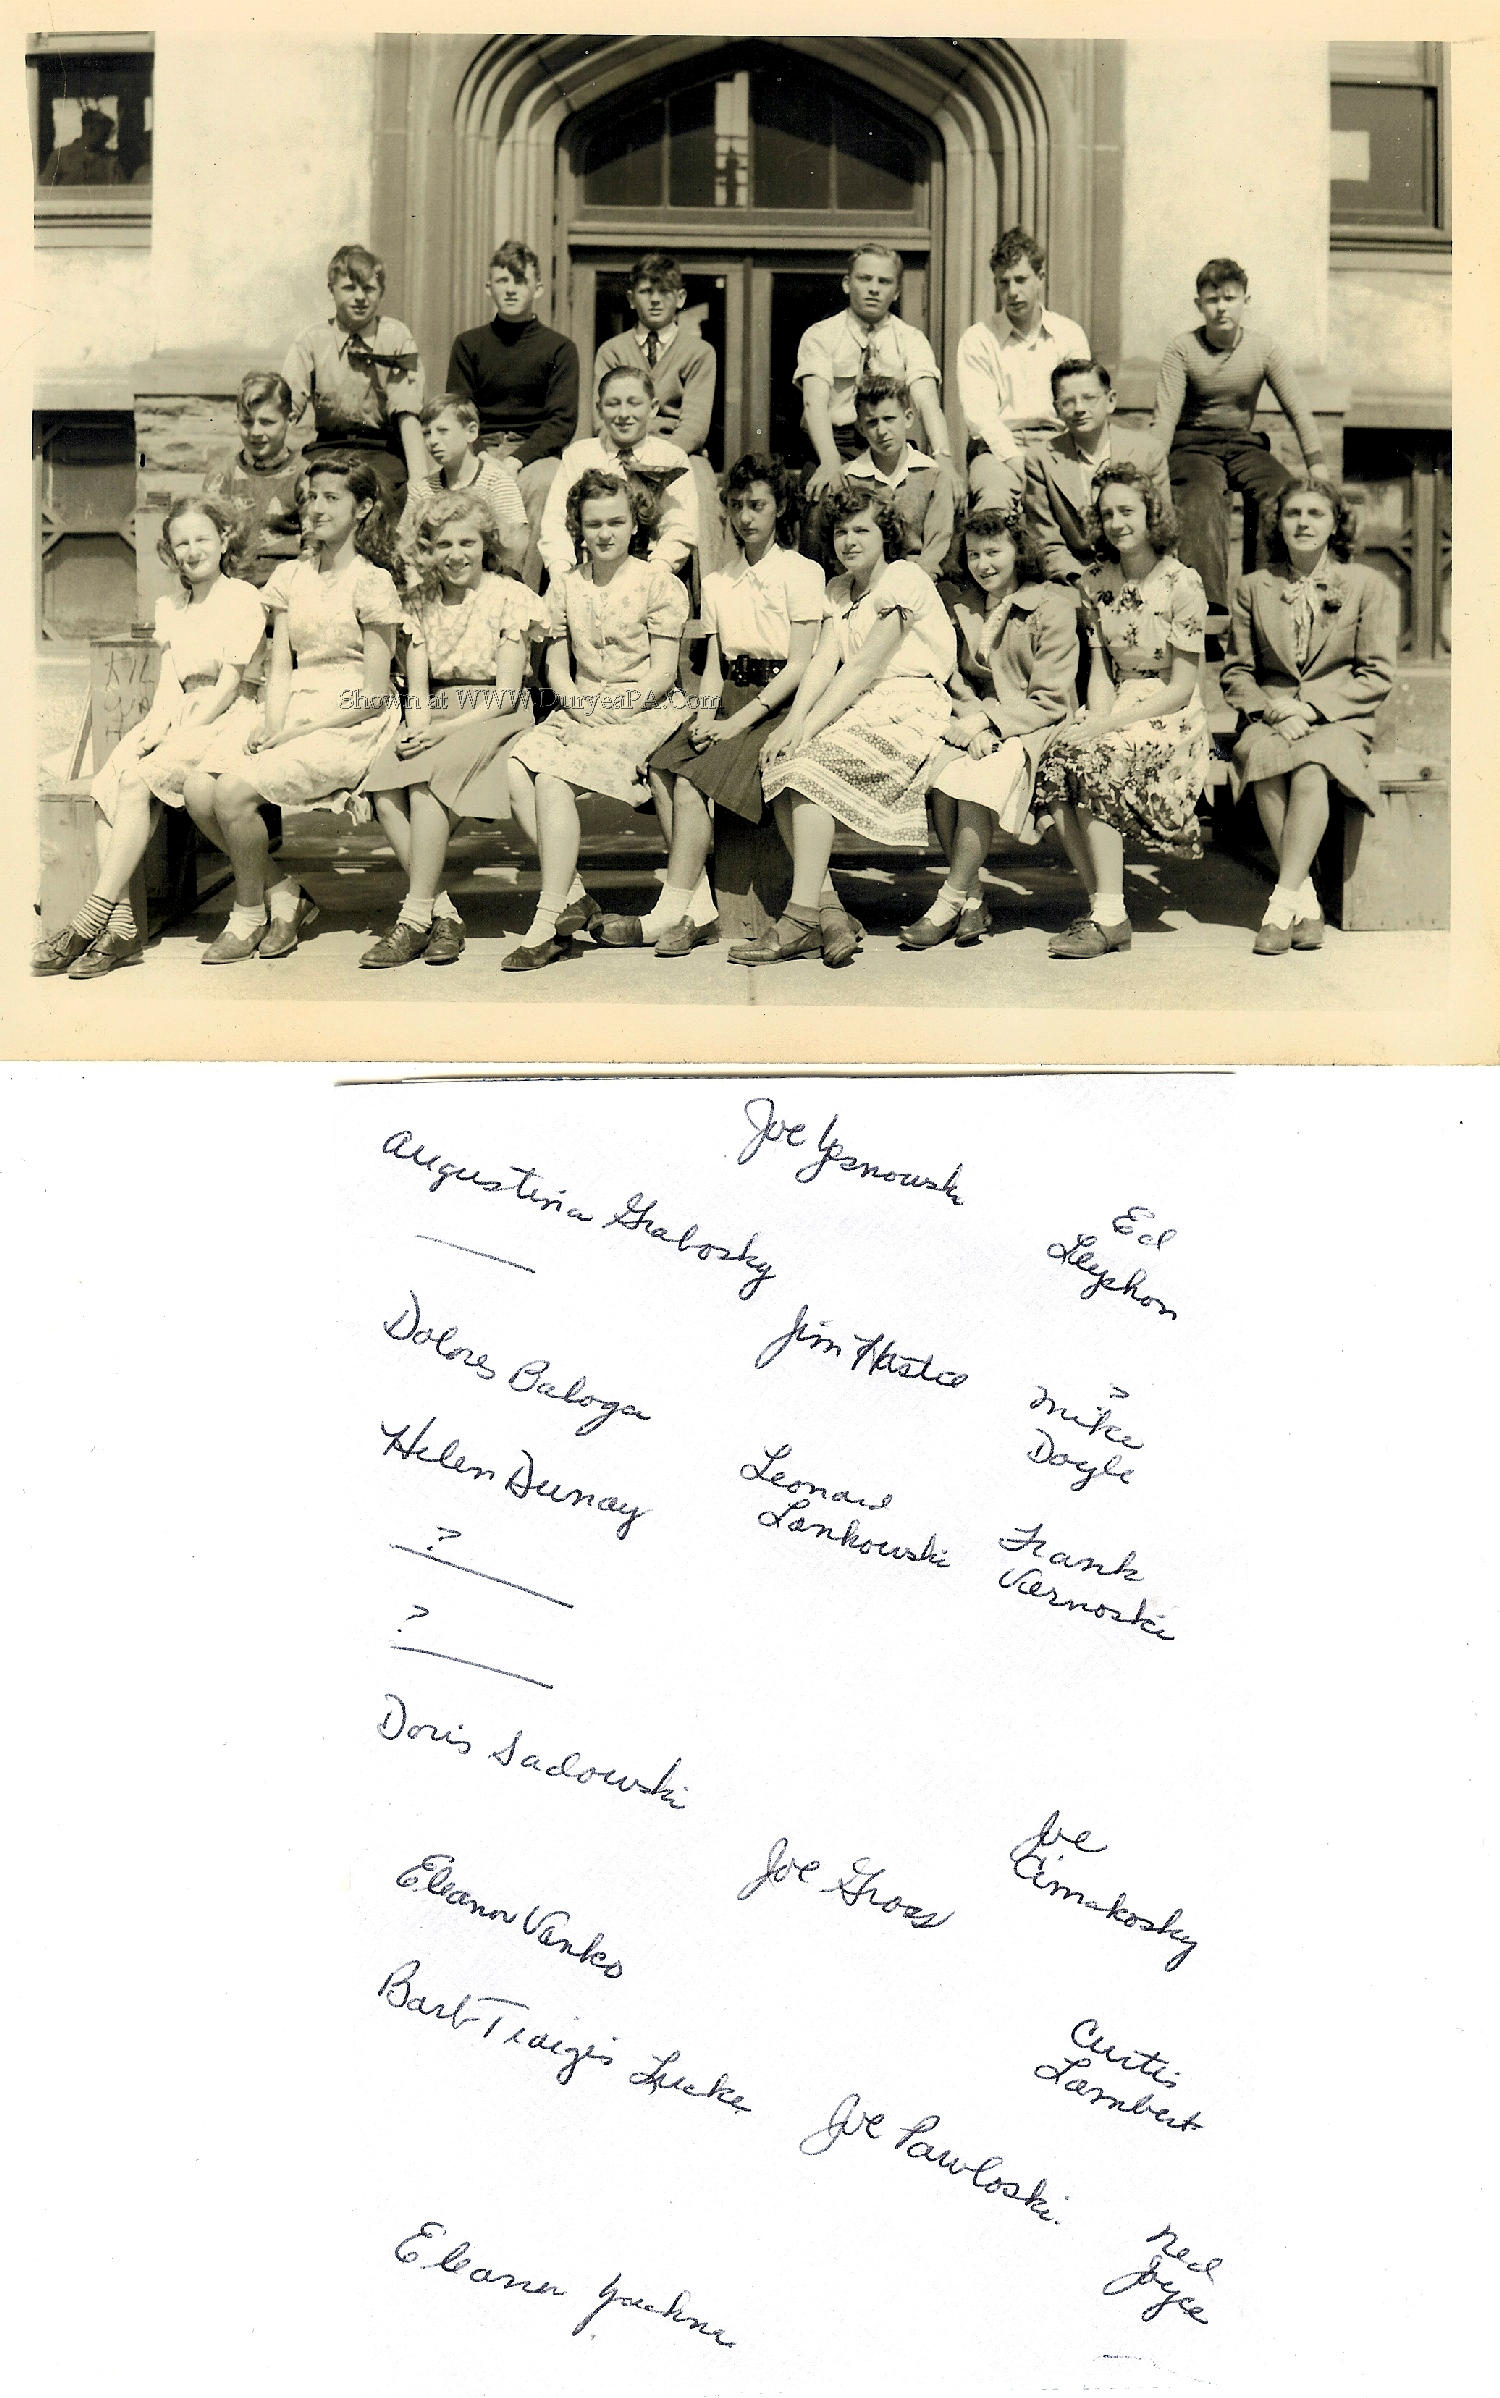 Shown at WWW.DuryeaPA.Com
Joe Yesnowski
Augustina Grabosky
Ed
Lleyshon
Jim Hastie
?
Mike
Doyle
Dolores Baloga
Helen Dunay
Leonard
Lankowski
Frank
Varnoski
?
?
Doris Sadowski
Joe
Cimakosky
Joe Gross
Eleanor Vanko
Barb Luke
Curtis
Lambert
Joe Pawloski
Ned
Joyce
Eleanor